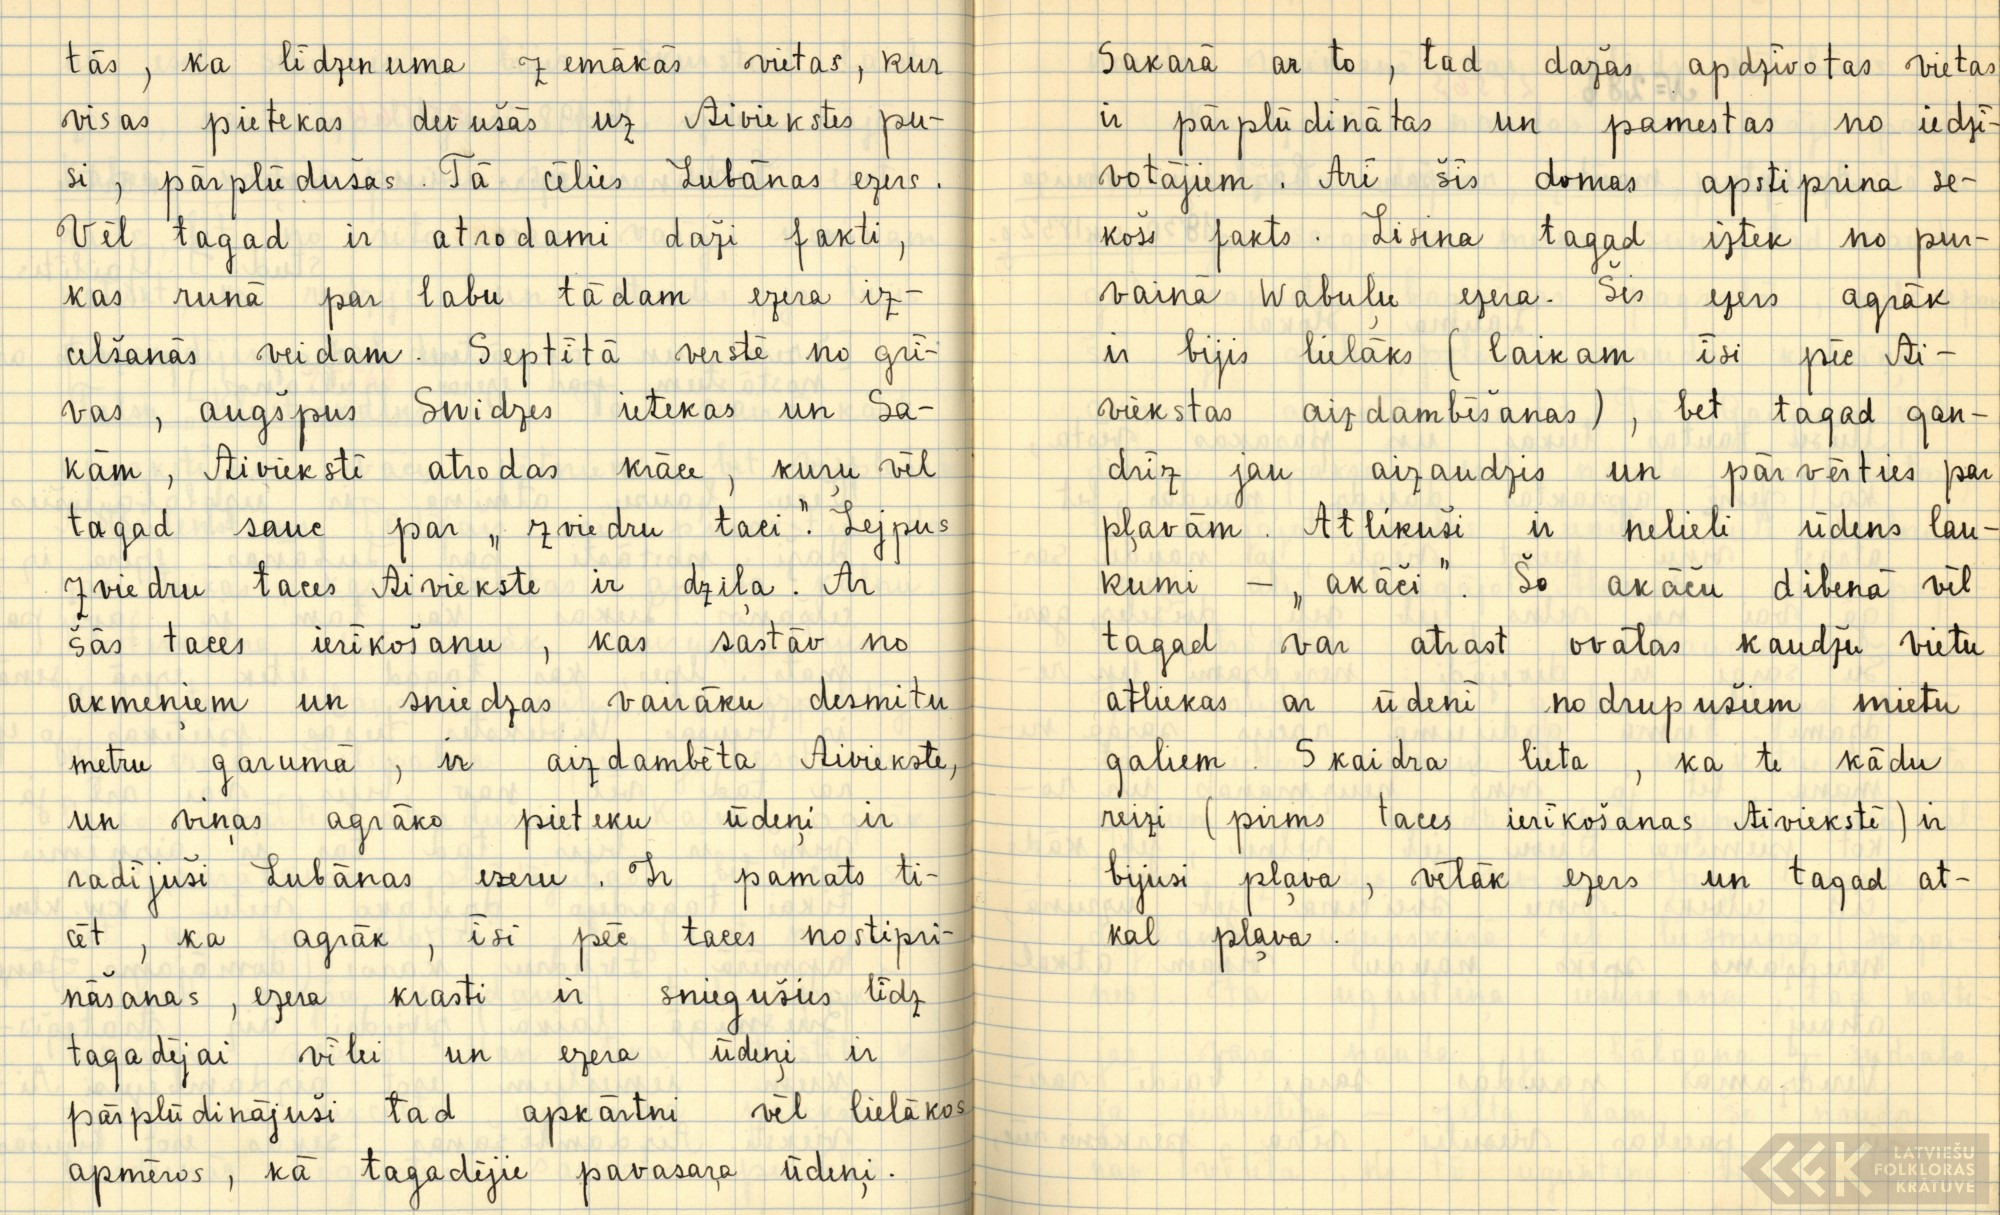 tās, ka līdzenuma zemākās vietas, kur
visas pietekas devušās uz Aiviekstes pu-
si, pārplūdušas. Tā cēlies Lubānas ezers.
Vēl tagad ir atrodami daži fakti,
kas runā par labu tādam ezera iz-
celšanās veidam. Septītā verstē no grī-
vas, augšpus Svidzes ietekas un Sa-
kām, Aiviekstē atrodas krāce, kuŗu vēl
tagad sauc par „zviedru taci”. Lejpus
zviedru taces Aiviekste ir dziļa. Ar
šās taces ierīkošanu, kas sastāv no
akmeņiem un sniedzas vairāku desmitu
metru garumā, ir aizdambēta Aiviekste,
un viņas agrāko pieteku ūdeņi ir
radījuši Lubānas ezeru. Ir pamats ti-
cēt, ka agrāk, īsi pēc taces nostipri-
nāšanas, ezera krasti ir sniegušies līdz
tagadējai vīlei un ezera ūdeņi ir
pārplūdinājuši tad apkārtni vēl lielākos
apmēros, kā tagadējie pavasaŗa ūdeņi.
Sakarā ar to, tad dažas apdzīvotas vietas
ir pārplūdinātas un pamestas no iedzī-
votājiem. Arī šīs domas apstiprina se-
košs fakts. Lisina tagad iztek no pur-
vainā Wabuļu ezera. Šis ezers agrāk
ir bijis lielāks (laikam īsi pēc Ai-
viekstas aizdambēšanas), bet tagad gan-
drīz jau aizaudzis un pārvērties par
pļavām. Atlikuši ir nelieli ūdens lau-
kumi – „akāči”. Šo akāču dibenā vēl
tagad var atrast ovālas kaudžu vietu
atliekas ar ūdenī nodrupušiem mietu
galiem. Skaidra lieta, ka te kādu
reizi (pirms taces ierīkošanas Aiviekstē) ir
bijusi pļava, vēlāk ezers un tagad at-
kal pļava.
LATVIEŠU
FOLKLORAS
KRĀTUVE